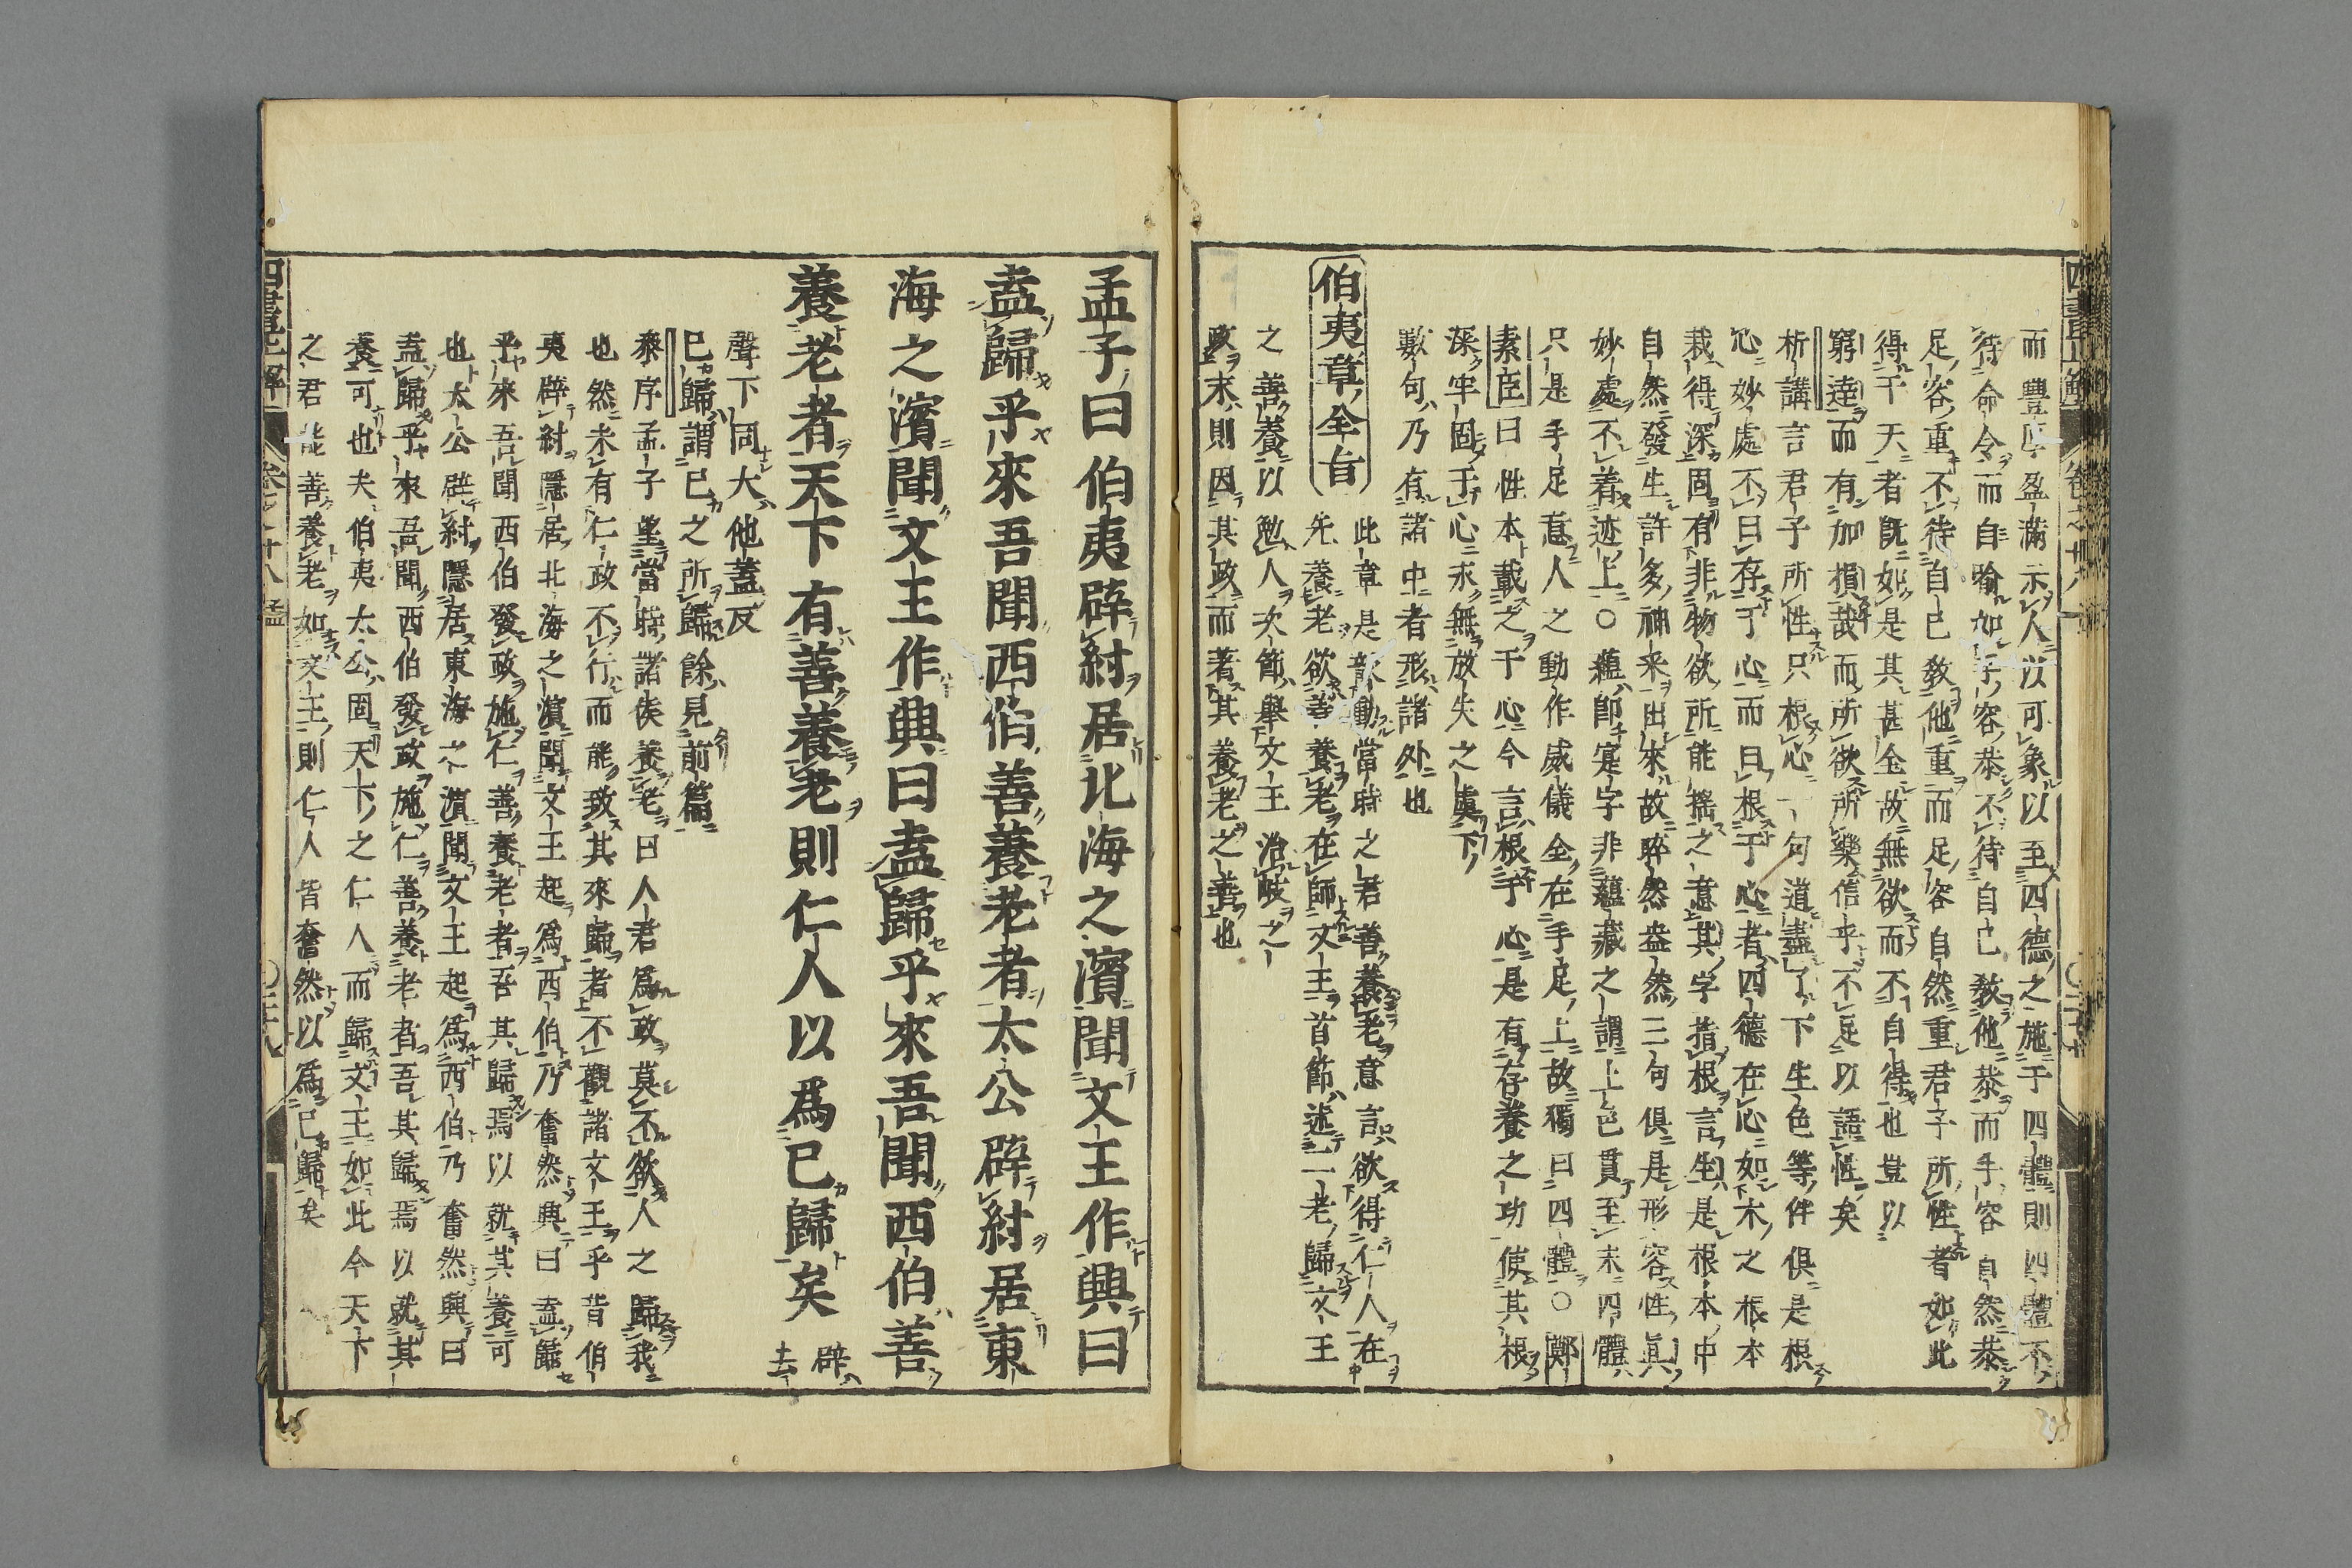 而豐厚盈滿示人以可象以至四德之施于四體則四體不
待命令而自喻如手容恭不待自已敎他恭而手容自然恭
足容重不待自已敎他重而足容自然重君子所性者如此
得于天者旣如是其甚全故無欲而不自得也豈以
窮達而有加損哉而所欲所樂信乎不足以語性矣
析講言君子所性只根心一句道盡了下生色等件俱是根
心妙處不曰存于心而曰根于心者四德在心如木之根本
栽得深固有非物欲所能搖之意其字指根言生是根本中
自然發生許多神采出來故睟然盎然三句俱是形容性眞
妙處不着迹上○蘊卽寔字非蘊藏之謂上色貫至末四體
只是手足意人之動作威儀全在手足上故獨曰四體○鄭
素臣曰性本載之于心今言根于心是有存養之功使其根
深牢固于心永無放失之虞下
數句乃有諸中者形諸外也
伯夷章全旨
此章是歆動當時之君善養老意言欲得仁人在
先養老欲善養老在師文王首節述二老歸文王
之善養以勉人次節舉文王治岐之
政末則因其政而著其養老之善也
孟子曰伯夷辟紂居北海之濱聞文王作興曰
盍歸乎來吾聞西伯善養老者太公辟紂居東
海之濱聞文王作興曰盍歸乎來吾聞西伯善
養老者天下有善養老則仁人以爲已歸矣
辟去
聲下同大他蓋反
已歸謂已之所歸餘見前篇
黍序孟子望當時諸侯養老曰人君爲政莫不欲人之歸我
也然未有仁政不行而能致其來歸者不觀諸文王乎昔伯
夷辟紂隱居北海之濱聞文王起爲西伯乃奮然興曰盍歸
乎來吾聞西伯發政施仁善養老者吾其歸焉以就其養可
也太公辟紂隱居東海之濱聞文王起爲西伯乃奮然興曰
盍歸乎來吾聞西伯發政施仁善養老者吾其歸焉以就其
養可也夫伯夷太公固天下之仁人而歸文王如此今天下
之君能善養老如文王則仁人皆奮然以爲已歸矣